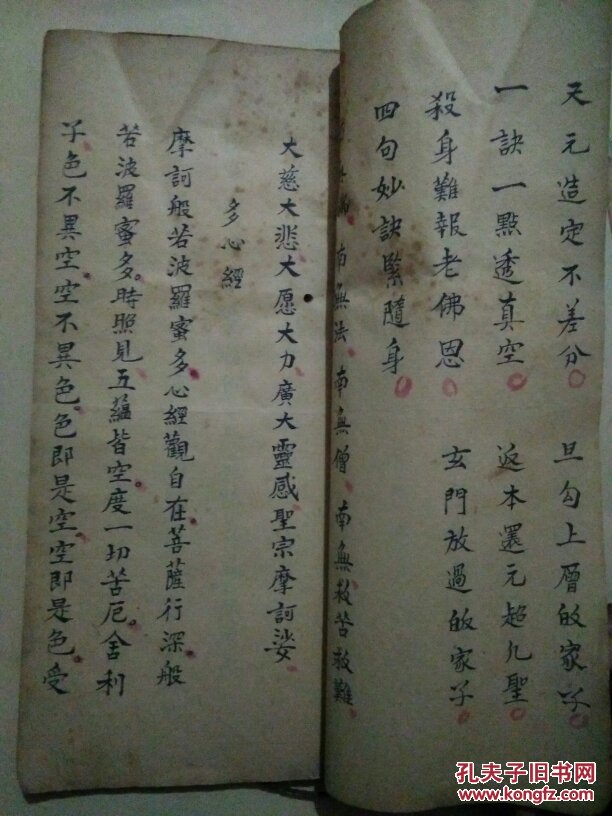 天元造定不差分 旦勾上層的家子
一訣一點透真空 返本還元超九聖
殺身難報老佛恩 玄門放過的家子
四句妙訣緊隨身
南無法 南無僧 南無救苦救難
大慈大悲大愿大力廣大靈感聖宗摩訶娑
多心經
摩訶般若波羅蜜多心經觀自在菩薩行深般
若波羅蜜多時照見五蘊皆空度一切苦厄舍利
子色不異空空不異色色即是空空即是色受
孔夫子旧书网
www.kongfz.com